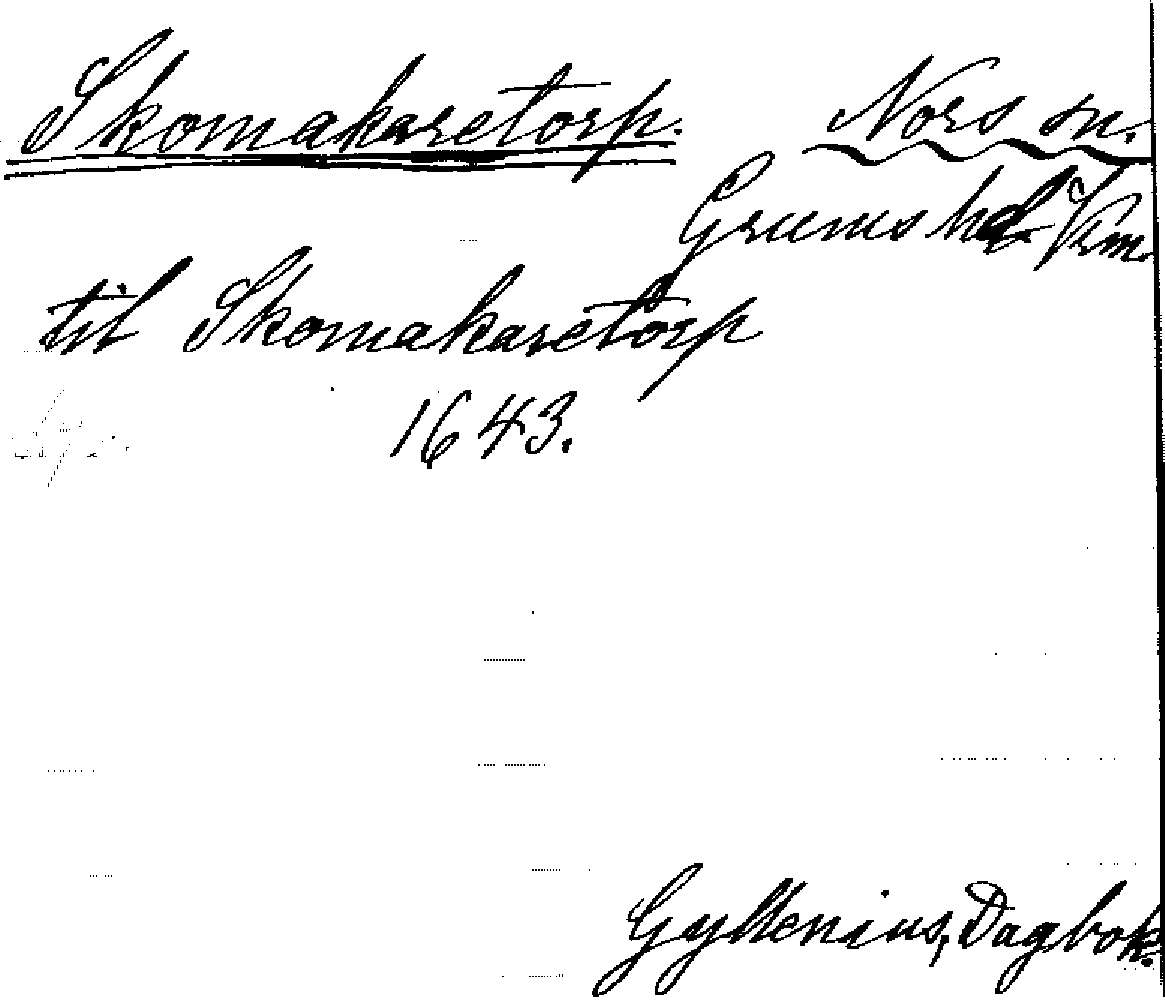 Skomakaretorp. Nors sn.
Grums hd Vrm.
til Skomakaretorp
1643.
Gyllenius, Dagbok.